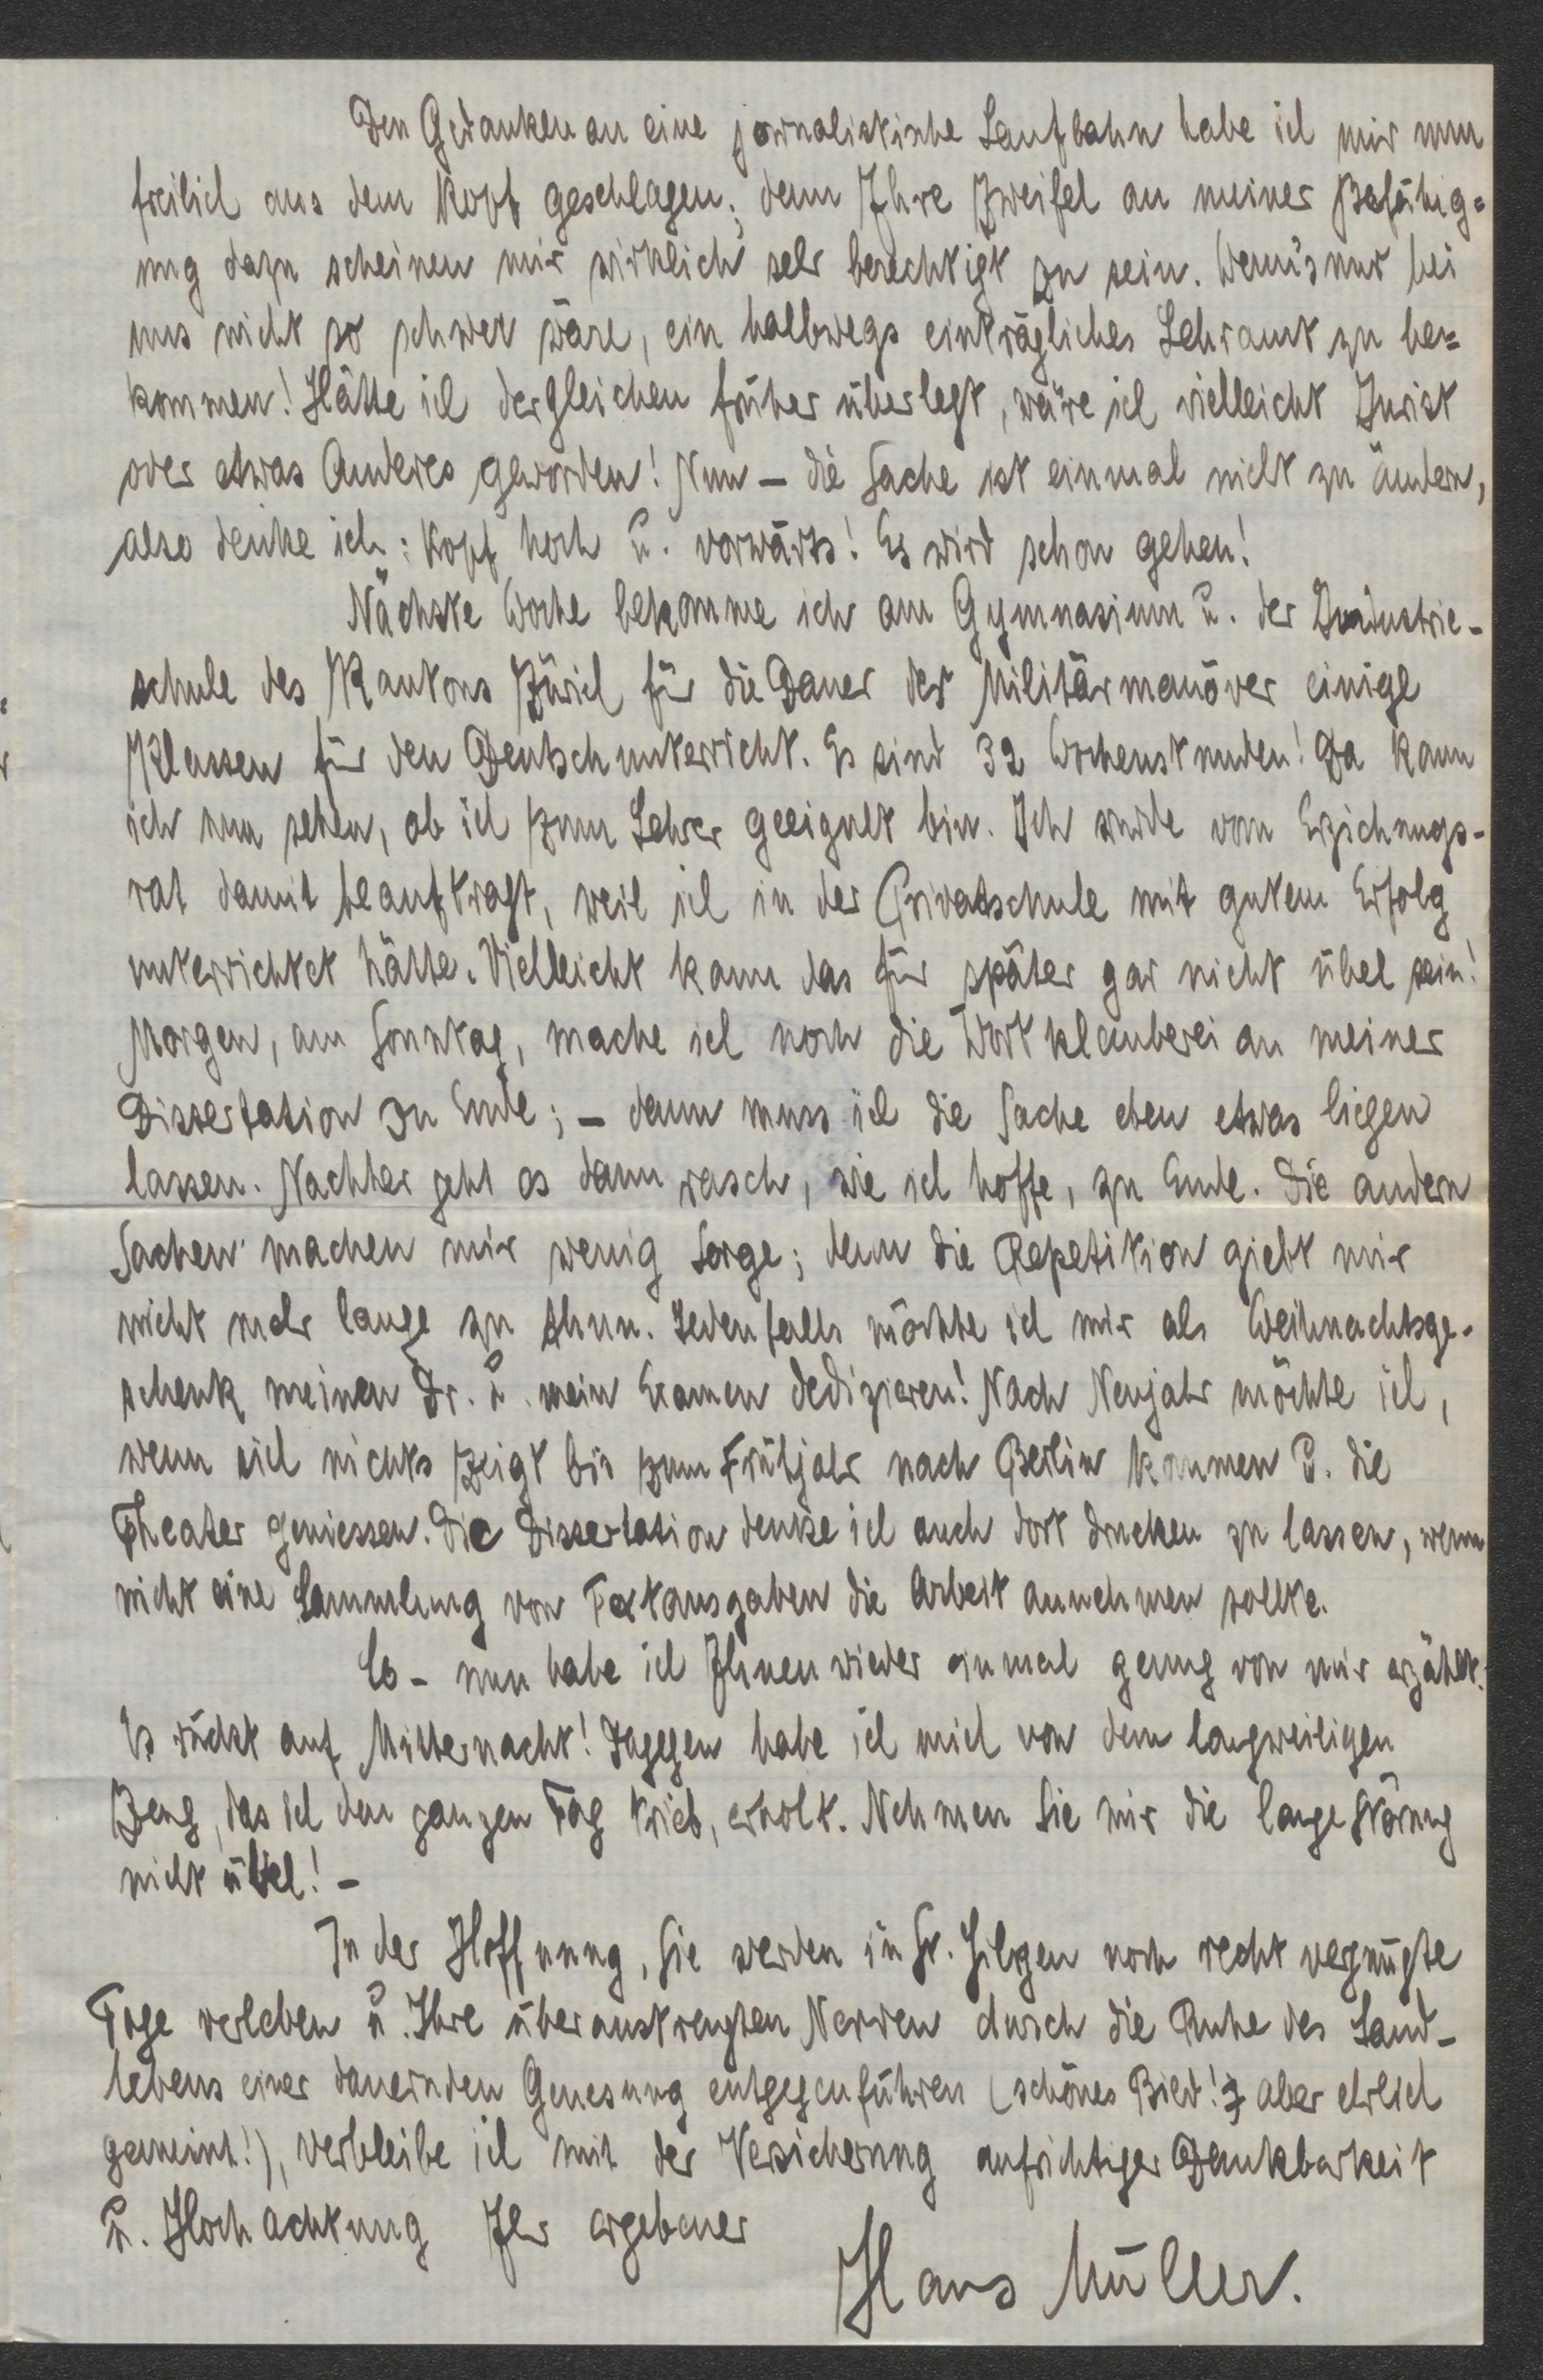 Den Gedanken an eine jornalistische Laufbahn habe ich mir nun
freilich aus dem Kopf geschlagen; denn Ihre Zweifel an meiner Befähig=
ung dazu scheinen mir wirklich sehr berechtigt zu sein. Wenn's nur bei
uns nicht so schwer wäre, ein halbwegs einträgliches Lehramt zu be=
kommen! Hätte ich dergleichen früher überlegt, wäre ich vielleicht Jurist
oder etwas Anderes geworden! Nun – die Sache ist einmal nicht zu ändern,
also denke ich: Kopf hoch u. vorwärts! Es wird schon gehen!
Nächste Woche bekomme ich am Gymnasium u. der Industrie-
schule des Kantons Zürich für die Dauer der Militärmanöver einige
Klassen für den Deutschunterricht. Es sind 32 Wochenstunden! Da kann
ich nun sehen, ob ich zum Lehrer geeignet bin. Ich wurde vom Erziehungs-
rat damit beauftragt, weil ich in der Privatschule mit gutem Erfolg
unterrichtet hätte. Vielleicht kann das für später gar nicht übel sein!
Morgen, am Sonntag, mache ich noch die Wortklauberei an meiner
Dissertation zu Ende; – dann muss ich die Sache eben etwas liegen
lassen. Nachher geht es dann rasch, wie ich hoffe, zu Ende. Die andern
Sachen machen mir wenig Sorge; denn die Repetition giebt mir
nicht mehr lange zu thun. Jedenfalls möchte ich mir als Weihnachtsge-
schenk meinen Dr. u. mein Examen dedizieren! Nach Neujahr möchte ich,
wenn sich nichts zeigt bis zum Frühjahr nach Berlin kommen u. die
Theater geniessen. Die Dissertation denke ich auch dort drucken zu lassen, wenn
nicht eine Sammlung von Textausgaben die Arbeit annehmen sollte.
So – nun habe ich Ihnen wieder einmal genug von mir erzählt.
Es rückt auf Mitternacht! Dagegen habe ich mich von dem langweiligen
Zeug, das ich den ganzen Tag trieb, erholt. Nehmen Sie mir die lange Störung
nicht übel! –
In der Hoffnung, Sie werden in St. Gilgen noch recht vergnügte
Tage verleben u. Ihre überanstrengten Nerven durch die Ruhe des Land-
lebens einer dauernden Genesung entgegenführen (schönes Bild! aber ehrlich
gemeint!), verbleibe ich mit der Versicherung aufrichtiger Dankbarkeit
u. Hochachtung Ihr ergebener
Hans Müller.